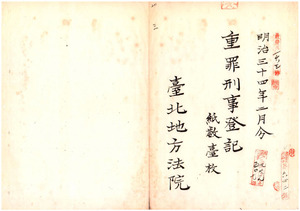 明治三十四年二月分
重罪刑事登記
紙數臺枚
臺北地方法院